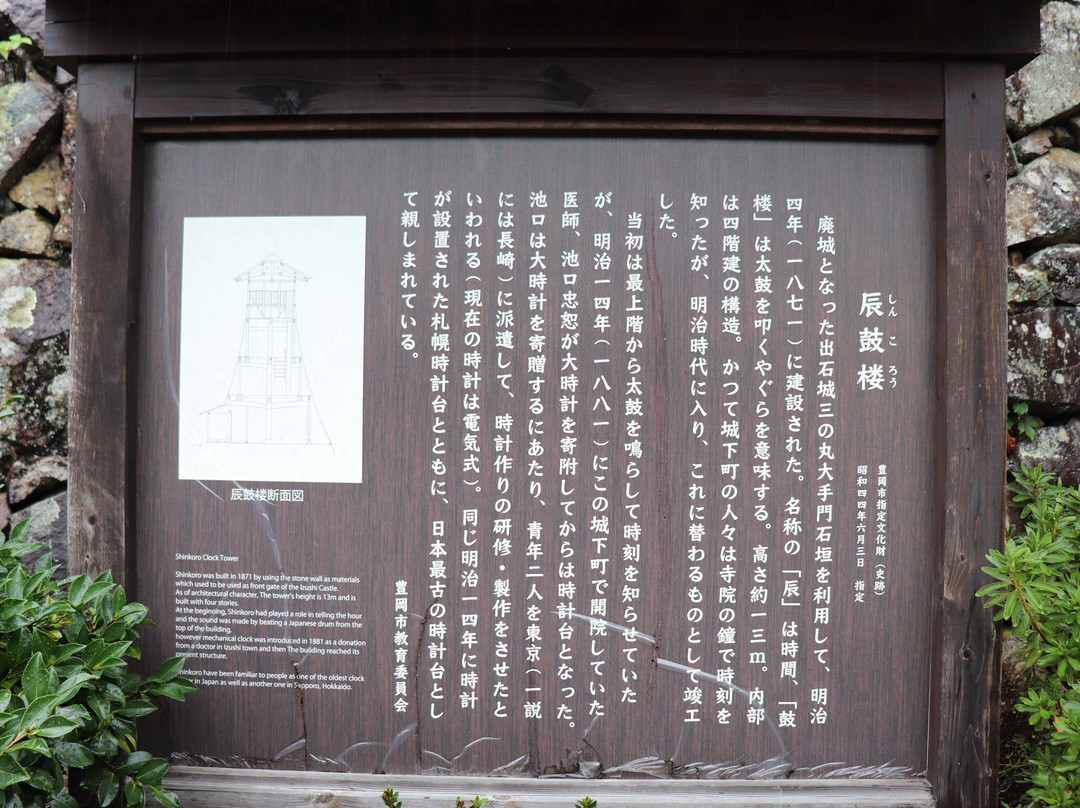 辰鼓楼
しんころう
豊岡市指定文化財（史跡）
昭和四四年六月三日　指定
廃城となった出石城三の丸大手門石垣を利用して、明治
四年（一八七一）に建設された。名称の「辰」は時間、「鼓
楼」は太鼓を叩くやぐらを意味する。高さ約一三ｍ。内部
は四階建の構造。かつて城下町の人々は寺院の鐘で時刻を
知ったが、明治時代に入り、これに替わるものとして竣工
した。
当初は最上階から太鼓を鳴らして時刻を知らせていた
が、明治一四年（一八八一）にこの城下町で開院していた
医師、池口忠恕が大時計を寄附してからは時計台となった。
池口は大時計を寄贈するにあたり、青年二人を東京（一説
には長崎）に派遣して、時計作りの研修・製作をさせたと
いわれる（現在の時計は電気式）。同じ明治一四年に時計
が設置された札幌時計台とともに、日本最古の時計台とし
て親しまれている。
豊岡市教育委員会
辰鼓楼断面図
Shinkoro Clock Tower
Shinkoro was built in 1871 by using the stone wall as materials
which used to be used as front gate of the Izushi Castle.
As of architectural character, The tower's height is 13m and is
built with four stories.
At the beginning, Shinkoro had played a role in telling the hour
and the sound was made by beating a Japanese drum from the
top of the building,
however mechanical clock was introduced in 1881 as a donation
from a doctor in Izushi town and then The building reached its
present structure.
Shinkoro have been familiar to people as one of the oldest clock
in Japan as well as another one in Sapporo, Hokkaido.